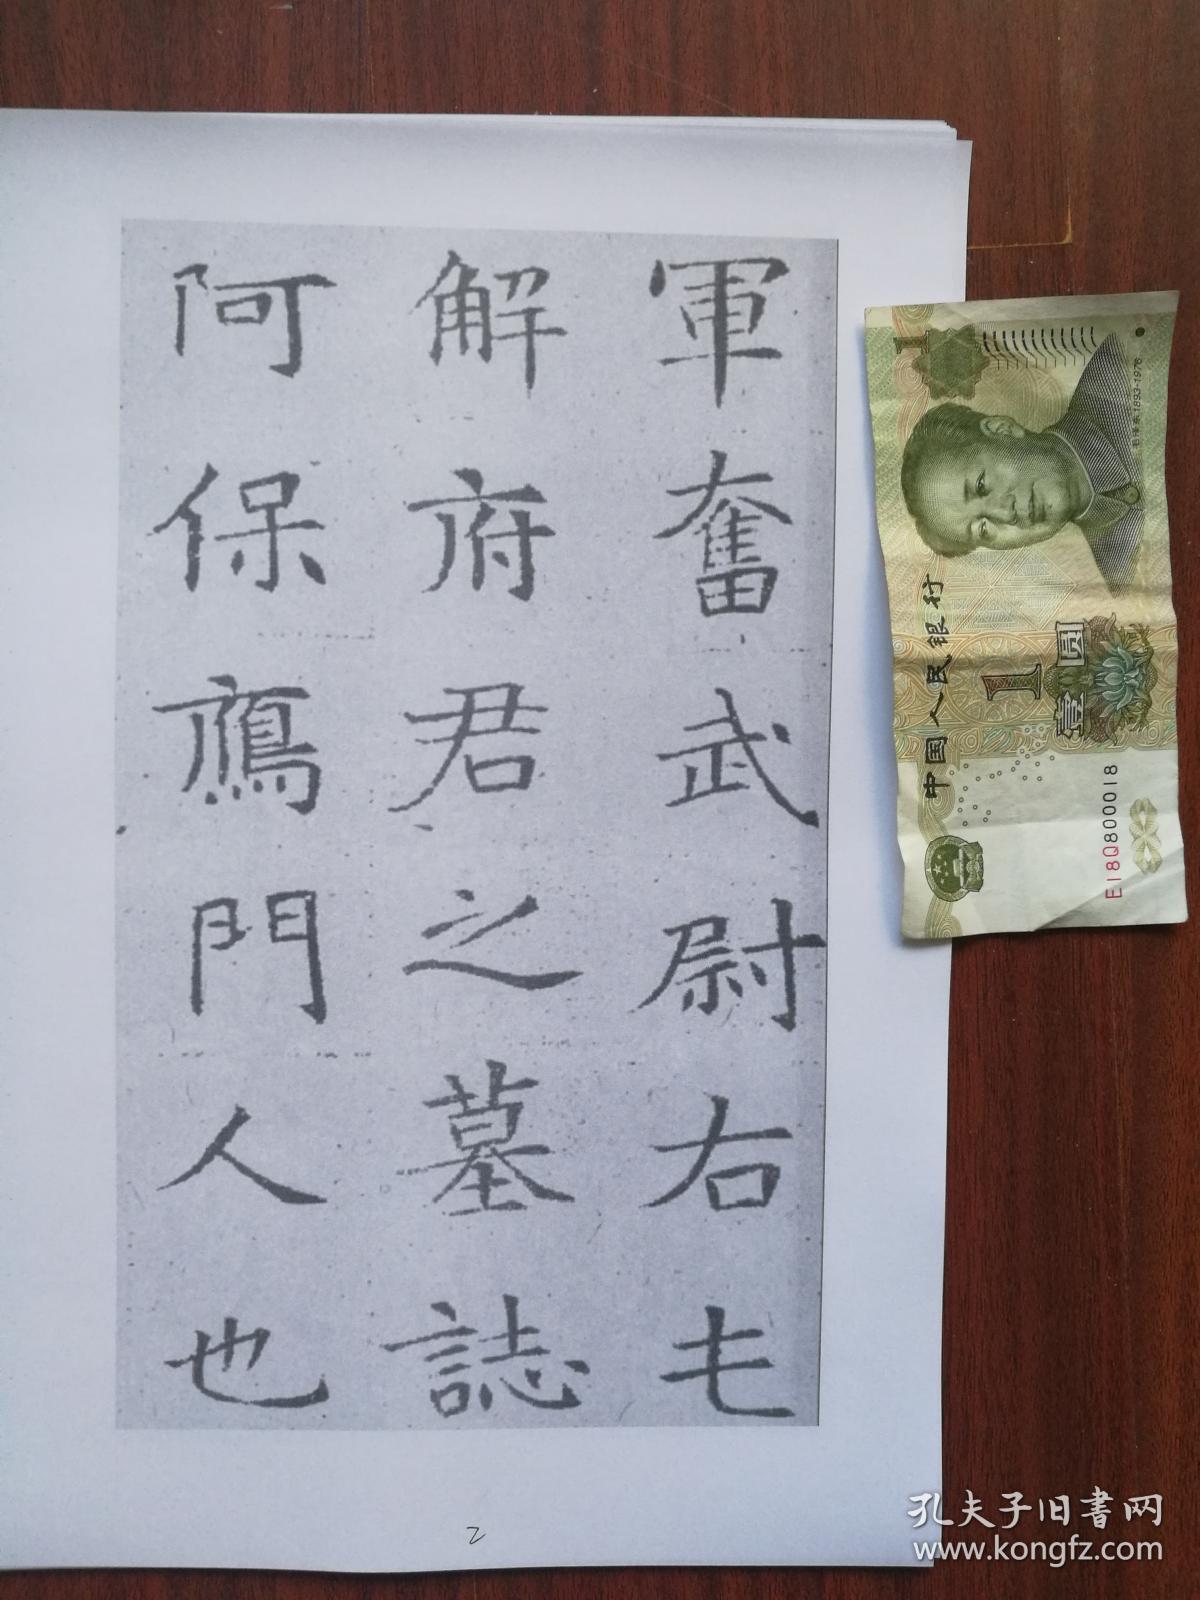 軍奮武尉右
解府君之墓誌
阿保鴈門人也
2
中国人民银行
1
壹圆
1
毛泽东1893-1976
E18Q800018
孔夫子旧书网
www.kongfz.com